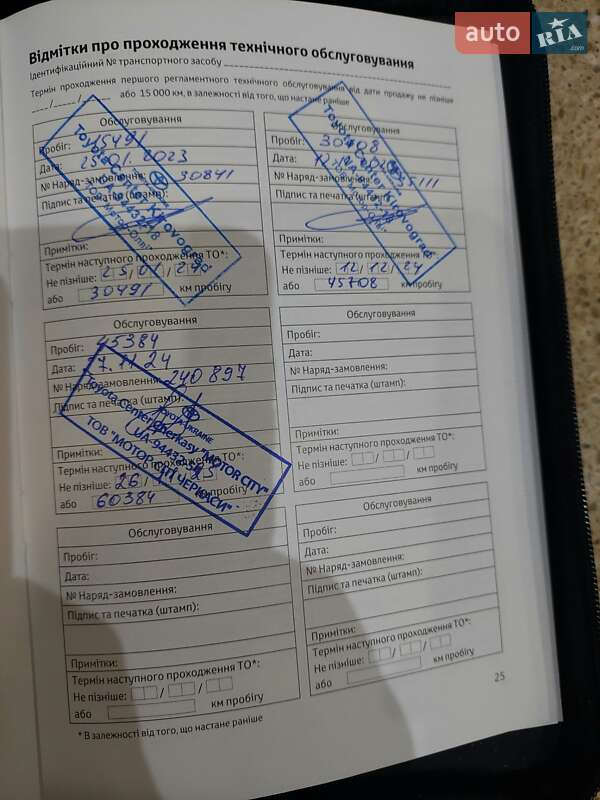 auto RIA .com
Відмітки про проходження технічного обслуговування
Ідентифікаційний № транспортного засобу
Термін проходження першого регламентного технічного обслуговування від дати продажу не пізніше
__/__/__ або 15 000 км, в залежності від того, що настане раніше
Обслуговування
Пробіг: 15491
Дата: 25.01.2023
№ Наряд-замовлення: 30841
Підпис та печатка (штамп):
Toyota Center Kirovograd
Примітки:
Термін наступного проходження ТО*:
Не пізніше: 25/01/24
або 30491 км пробігу
Обслуговування
Пробіг: 30708
Дата:
№ Наряд-замовлення:
Підпис та печатка (штамп):
Toyota Center Kirovograd
Примітки:
Термін наступного проходження ТО*:
Не пізніше: 12/12/24
або 45708 км пробігу
Обслуговування
Пробіг: 45384
Дата: 27.11.24
№ Наряд-замовлення: 240897
Підпис та печатка (штамп):
TOYOTA UKRAINE
Toyota Center Cherkasy "MOTOR CITY"
ТОВ "МОТОР СІТІ ЧЕРКАСИ"
Примітки:
Термін наступного проходження ТО*:
Не пізніше: 26/11/25
або 60384 км пробігу
Обслуговування
Пробіг:
Дата:
№ Наряд-замовлення:
Підпис та печатка (штамп):
Примітки:
Термін наступного проходження ТО*:
Не пізніше: / /
або км пробігу
Обслуговування
Пробіг:
Дата:
№ Наряд-замовлення:
Підпис та печатка (штамп):
Примітки:
Термін наступного проходження ТО*:
Не пізніше: / /
або км пробігу
Обслуговування
Пробіг:
Дата:
№ Наряд-замовлення:
Підпис та печатка (штамп):
Примітки:
Термін наступного проходження ТО*:
Не пізніше: / /
або км пробігу
* В залежності від того, що настане раніше
25